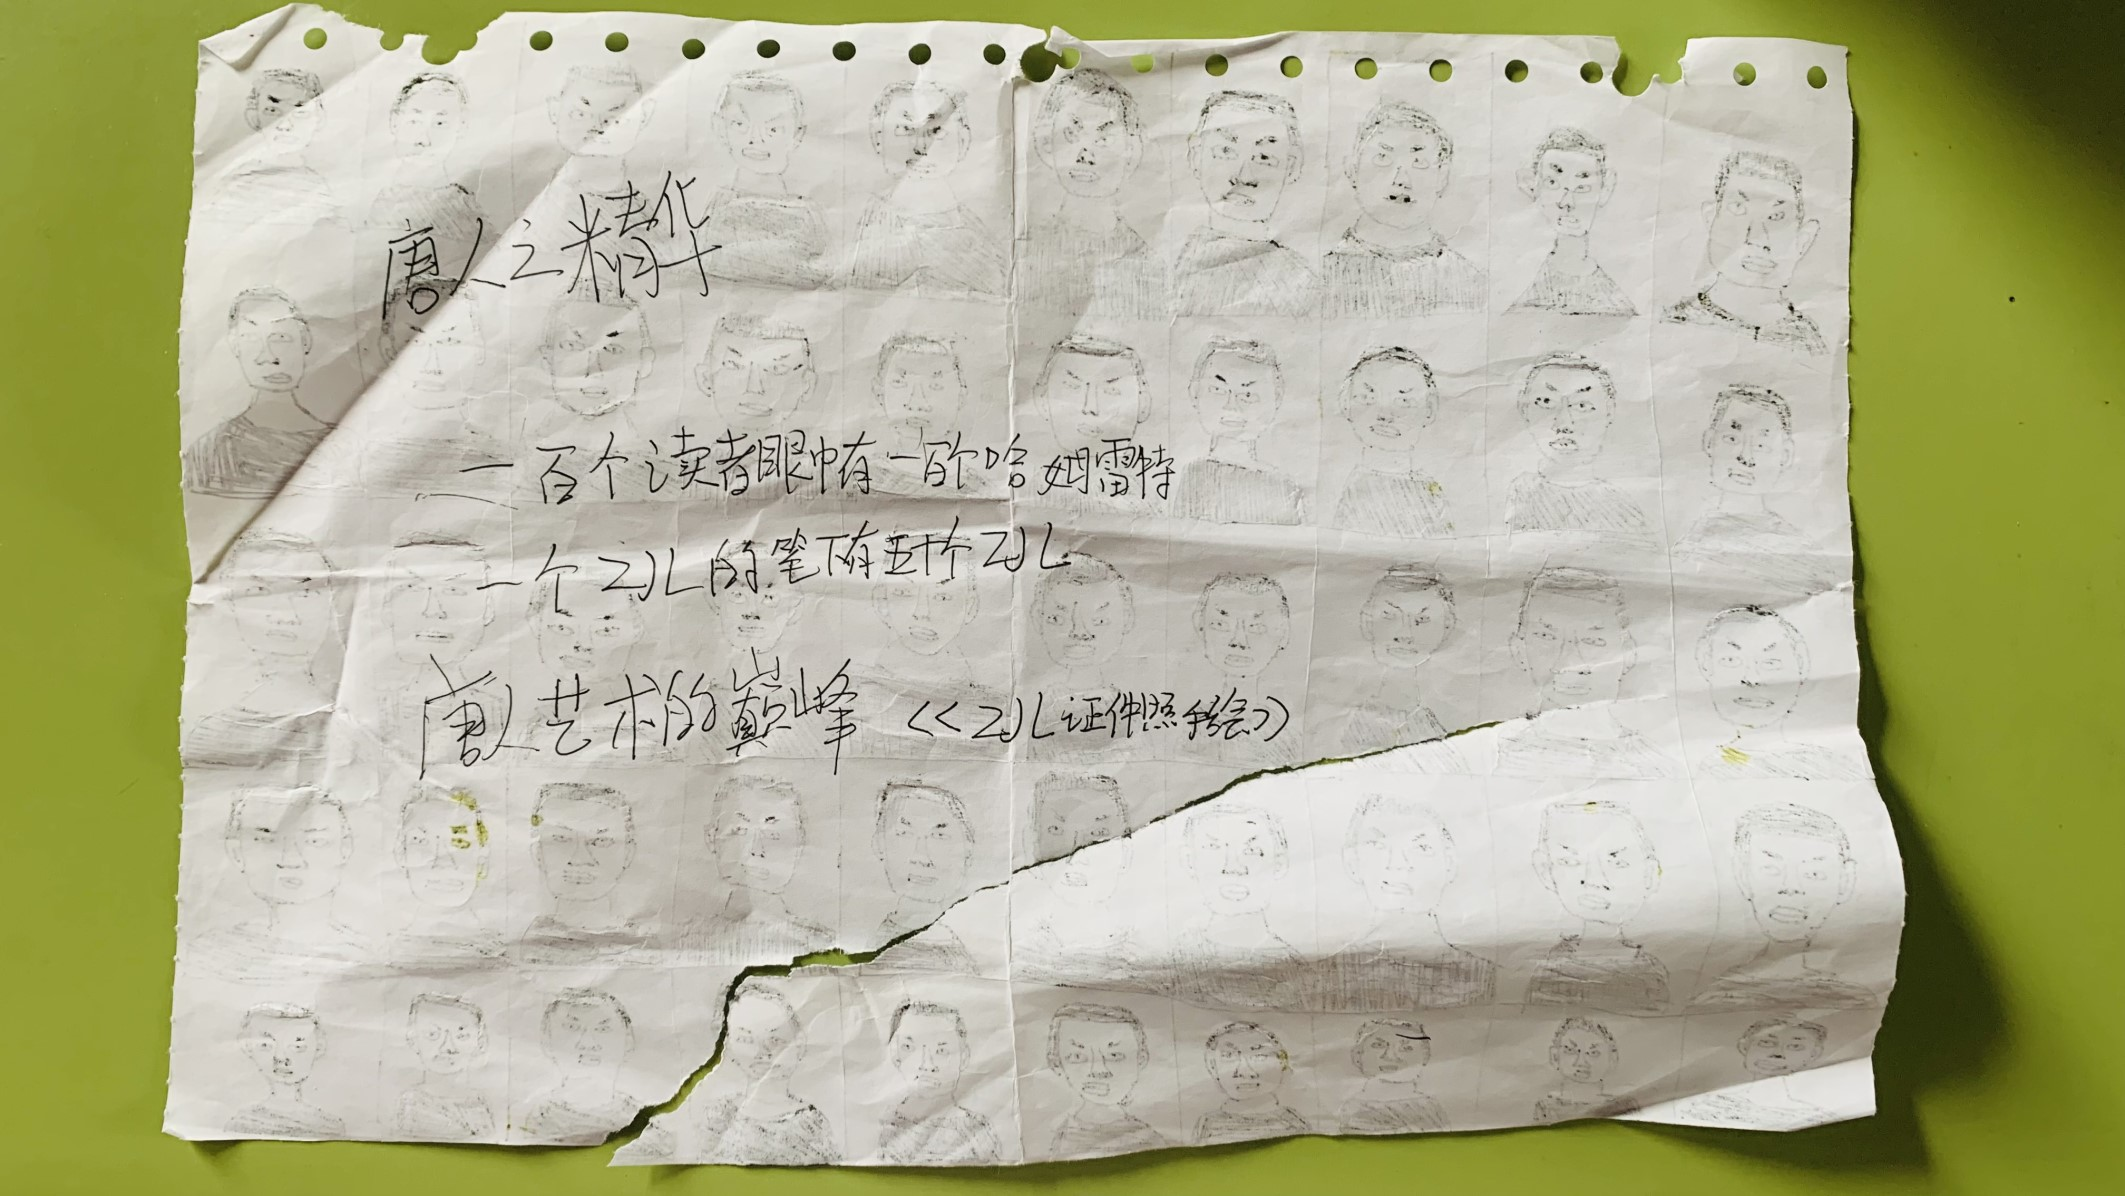 唐人之精华
一百个读者眼中有一百个哈姆雷特
一个ZJL的笔下有五十个ZJL
唐人艺术的巅峰 《ZJL证件照手绘》